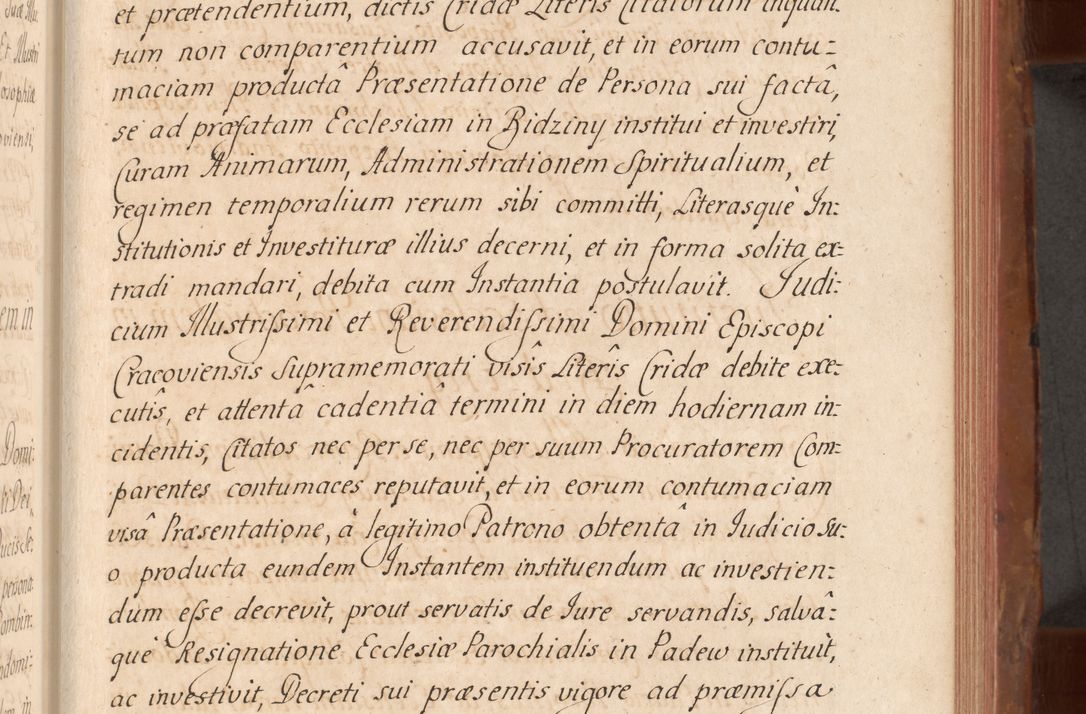 et prætendentium, dictis Cridæ Literis Citatorum inquan:
tum non comparentium accusavit, et in eorum contu:
maciam productâ Præsentatione de Persona sui factâ,
se ad præfatam Ecclesiam in Bidziny institui et investiri,
Curam Animarum, Administrationem Spiritualium, et
regimen temporalium rerum sibi committi, Literasquè In:
stitutionis et Investituræ illius decerni, et in forma solita ex:
tradi mandari, debita cum Instantia postulavit. Judi:
cium Illustriſsimi et Reverendiſsimi Domini Episcopi
Cracoviensis supramemorati visîs Literîs Cridæ debite exe:
cutîs, et attentâ cadentiâ termini in diem hodiernam in:
cidentis, Citatos nec per se, nec per suum Procuratorem Com:
parentes contumaces reputavit, et in eorum contumaciam
visâ Præsentatione, à legitimo Patrono obtentâ in Judicio su:
o producta eundem Instantem instituendum ac investien:
dum eſse decrevit, prout servatis de Jure servandis, salvâ:
què Resignatione Ecclesiæ Parochialis in Padew instituit,
ac investivit, Decreti sui præsentis vigore ad præmiſsa